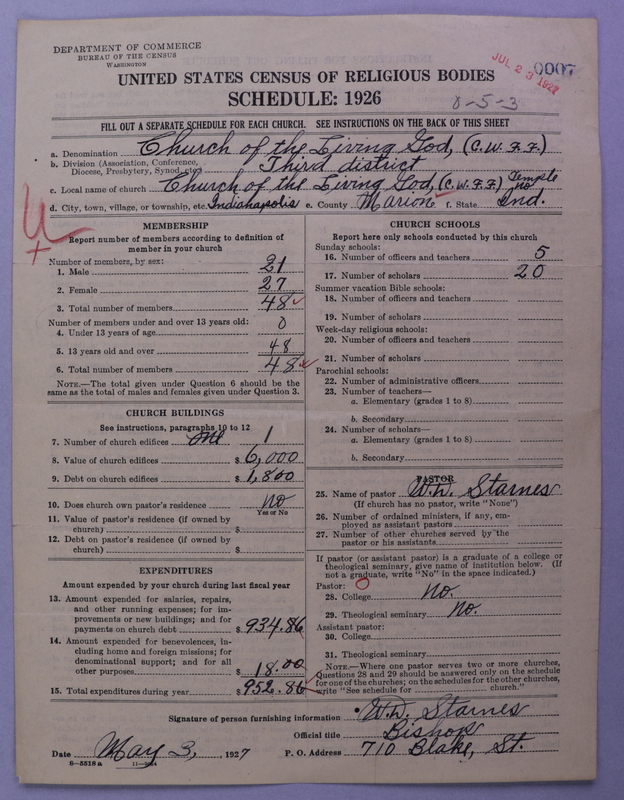 DEPARTMENT OF COMMERCE
BUREAU OF THE CENSUS
WASHINGTON
JUL 23 1927
0007
UNITED STATES CENSUS OF RELIGIOUS BODIES
SCHEDULE: 1926
8-5-3
FILL OUT A SEPARATE SCHEDULE FOR EACH CHURCH. SEE INSTRUCTIONS ON THE BACK OF THIS SHEET
a. Denomination Church of the Living God, (C. W. F. F.)
b. Division (Association, Conference, Diocese, Presbytery, Synod, etc.) Third district
c. Local name of church Church of the Living God, (C. W. F. F.) Temple no
d. City, town, village, or township, etc. Indianapolis e. County Marion f. State Ind.
MEMBERSHIP
Report number of members according to definition of
member in your church
Number of members, by sex:
1. Male 21
2. Female 27
3. Total number of members 48
Number of members under and over 13 years old:
4. Under 13 years of age 0
5. 13 years old and over 48
6. Total number of members 48
NOTE.—The total given under Question 6 should be
same as the total of males and females given under Question 3.
CHURCH BUILDINGS
See instructions, paragraphs 10 to 12
7. Number of church edifices one 1
8. Value of church edifices $ 6,000
9. Debt on church edifices $ 1,800
10. Does church own pastor's residence no
Yes or No
11. Value of pastor's residence (if owned by
church) $
12. Debt on pastor's residence (if owned by
church) $
EXPENDITURES
Amount expended by your church during last fiscal year
13. Amount expended for salaries, repairs,
and other running expenses; for im-
provements or new buildings; and for
payments on church debt $ 934.86
14. Amount expended for benevolences, in-
cluding home and foreign missions; for
denominational support; and for all
other purposes $ 18.00
15. Total expenditures during year $ 952.86
CHURCH SCHOOLS
Report here only schools conducted by this church
Sunday schools:
16. Number of officers and teachers 5
17. Number of scholars 20
Summer vacation Bible schools:
18. Number of officers and teachers
19. Number of scholars
Week-day religious schools:
20. Number of officers and teachers
21. Number of scholars
Parochial schools:
22. Number of administrative officers
23. Number of teachers—
a. Elementary (grades 1 to 8)
b. Secondary
24. Number of scholars—
a. Elementary (grades 1 to 8)
b. Secondary
PASTOR
25. Name of pastor W. D. Starnes
(If church has no pastor, write "None")
26. Number of ordained ministers, if any, em-
ployed as assistant pastors
27. Number of other churches served by the
pastor or his assistants
If pastor (or assistant pastor) is a graduate of a college or
theological seminary, give name of institution below. (If
not a graduate, write "No" in the space indicated.)
Pastor:
28. College No.
29. Theological seminary No.
Assistant pastor:
30. College
31. Theological seminary
NOTE.—Where one pastor serves two or more churches,
Questions 28 and 29 should be answered only on the schedule
for one of the churches; on the schedules for the other churches,
write "See schedule for church."
Signature of person furnishing information W. D. Starnes
Official title Bishop
Date May 3, 1927 P. O. Address 710 Blake, St.
8-5518 a